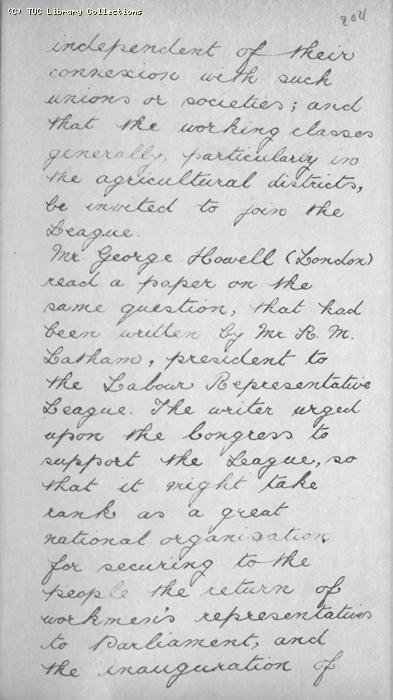 (C) TUC Library Collections
204
independent of their
connexion with such
unions or societies; and
that the working classes
generally, particularly in
the agricultural districts,
be invited to join the
League.
Mr. George Howell (London)
read a paper on the
same question, that had
been written by Mr. R. M.
Latham, president to
the Labour Representative
League. The writer urged
upon the Congress to
support the League, so
that it might take
rank as a great
national organisation
for securing to the
people the return of
workmen's representatives
to Parliament, and
the inauguration of